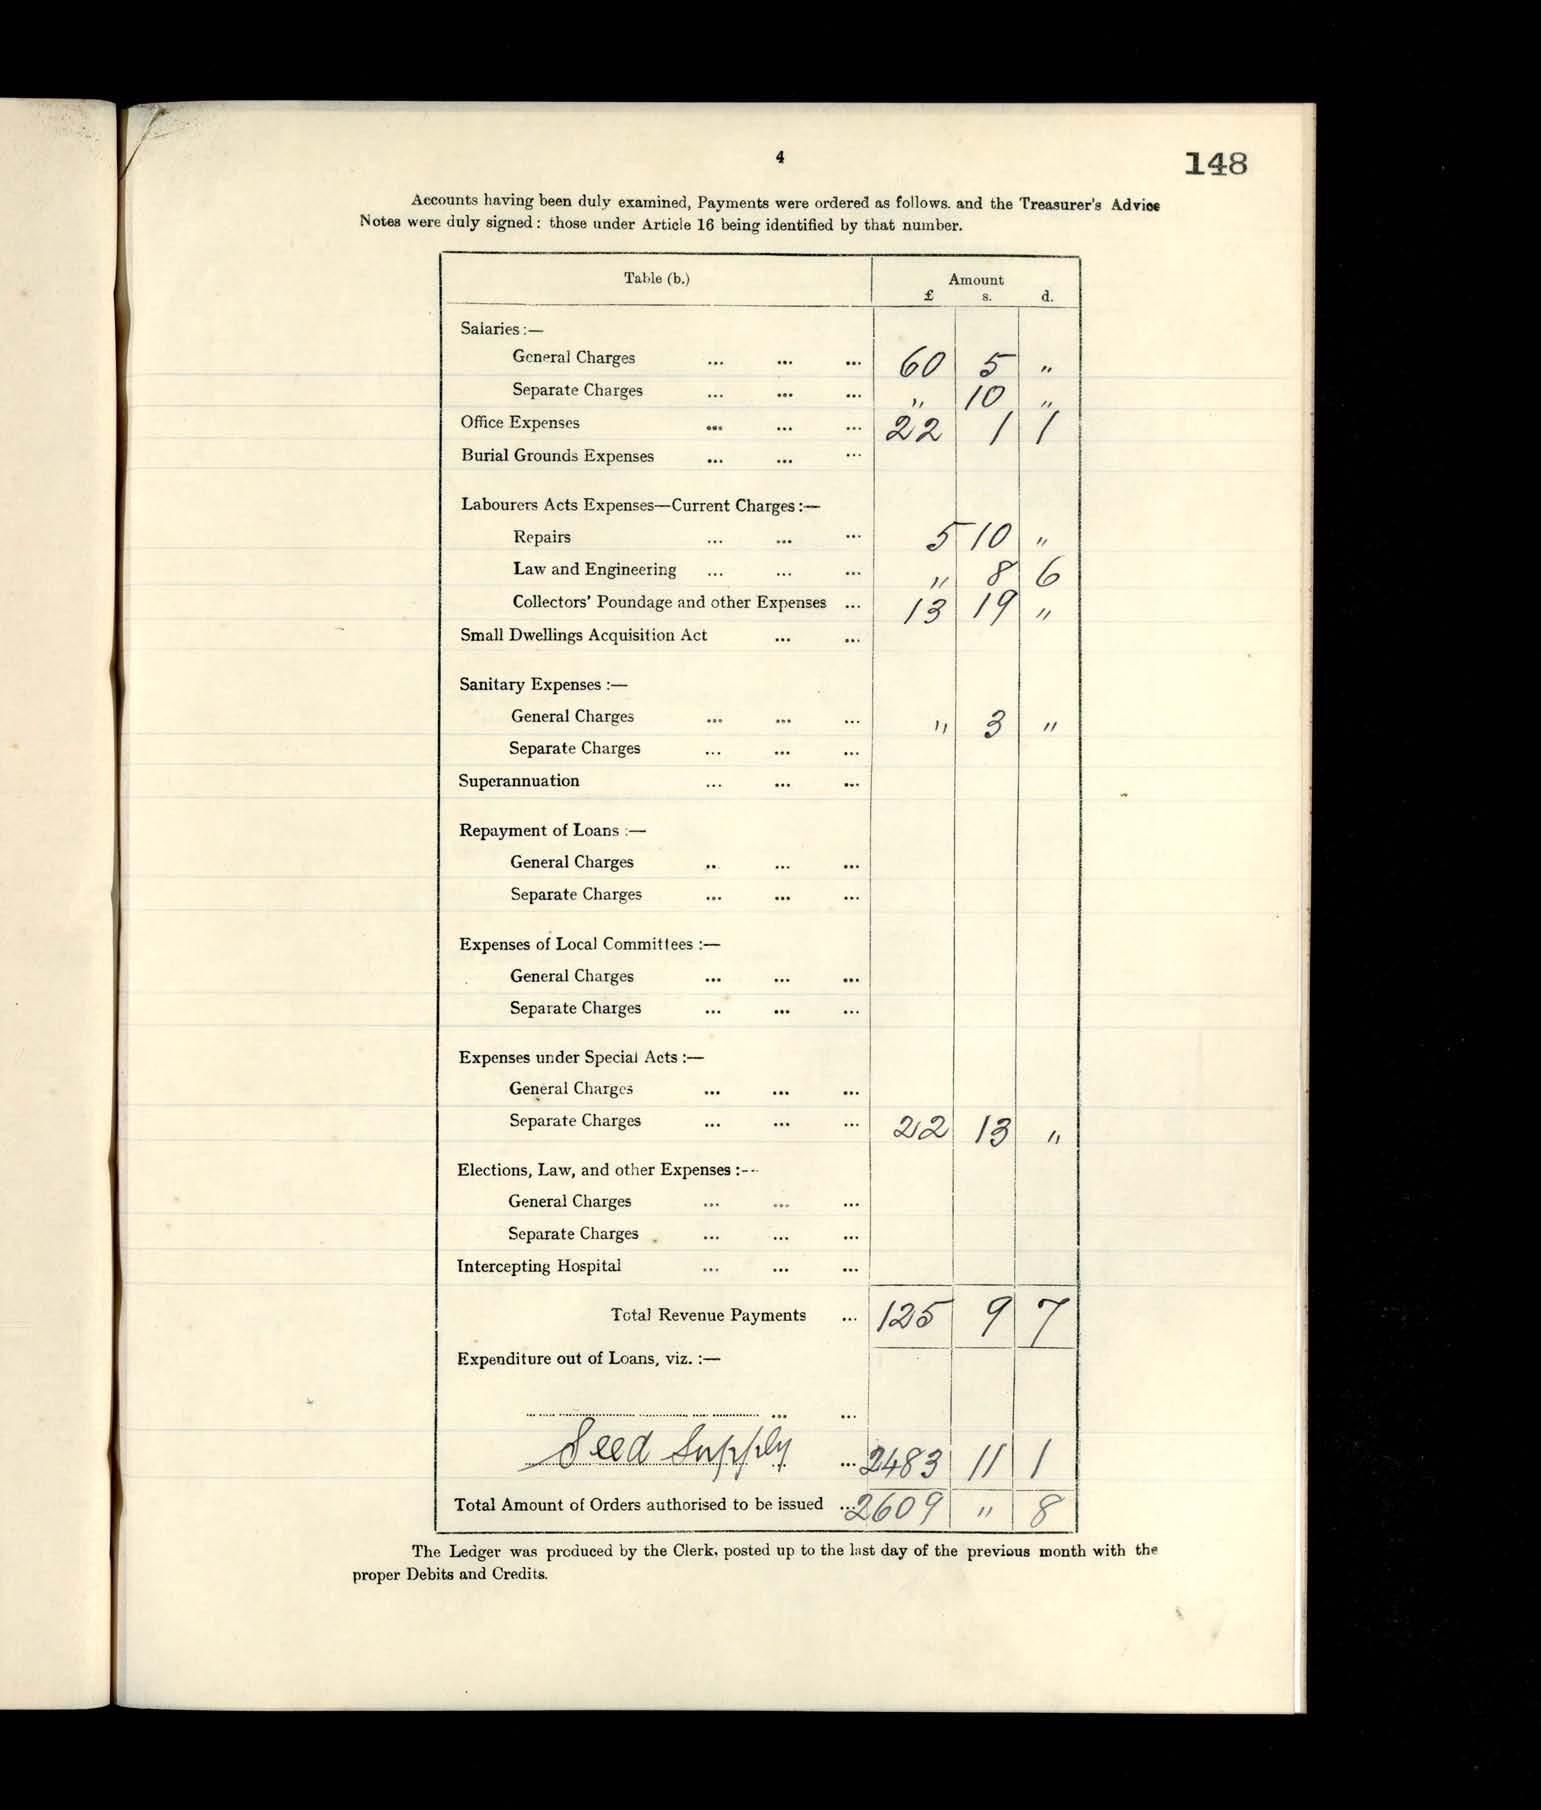 4
148
Accounts having been duly examined, Payments were ordered as follows. and the Treasurer's Advice
Notes were duly signed: those under Article 16 being identified by that number.
Table (b.) Amount
£ s. d.
Salaries :—
General Charges ... ... ... 60 5 "
Separate Charges ... ... ... " 10 "
Office Expenses ... ... ... 22 1 1
Burial Grounds Expenses ... ... ...
Labourers Acts Expenses—Current Charges :—
Repairs ... ... ... 5 10 "
Law and Engineering ... ... ... " 8 6
Collectors' Poundage and other Expenses ... 13 19 "
Small Dwellings Acquisition Act ... ...
Sanitary Expenses :—
General Charges ... ... ... " 3 "
Separate Charges ... ... ...
Superannuation ... ... ...
Repayment of Loans :—
General Charges .. ... ...
Separate Charges ... ... ...
Expenses of Local Committees :—
General Charges ... ... ...
Separate Charges ... ... ...
Expenses under Special Acts :—
General Charges ... ... ...
Separate Charges ... ... ... 22 13 "
Elections, Law, and other Expenses :--
General Charges ... ... ...
Separate Charges ... ... ...
Intercepting Hospital ... ... ...
Total Revenue Payments ... 125 9 7
Expenditure out of Loans, viz. :—
... ...
Seed Supply ... 2483 11 1
Total Amount of Orders authorised to be issued ... 2609 " 8
The Ledger was produced by the Clerk, posted up to the last day of the previous month with the
proper Debits and Credits.